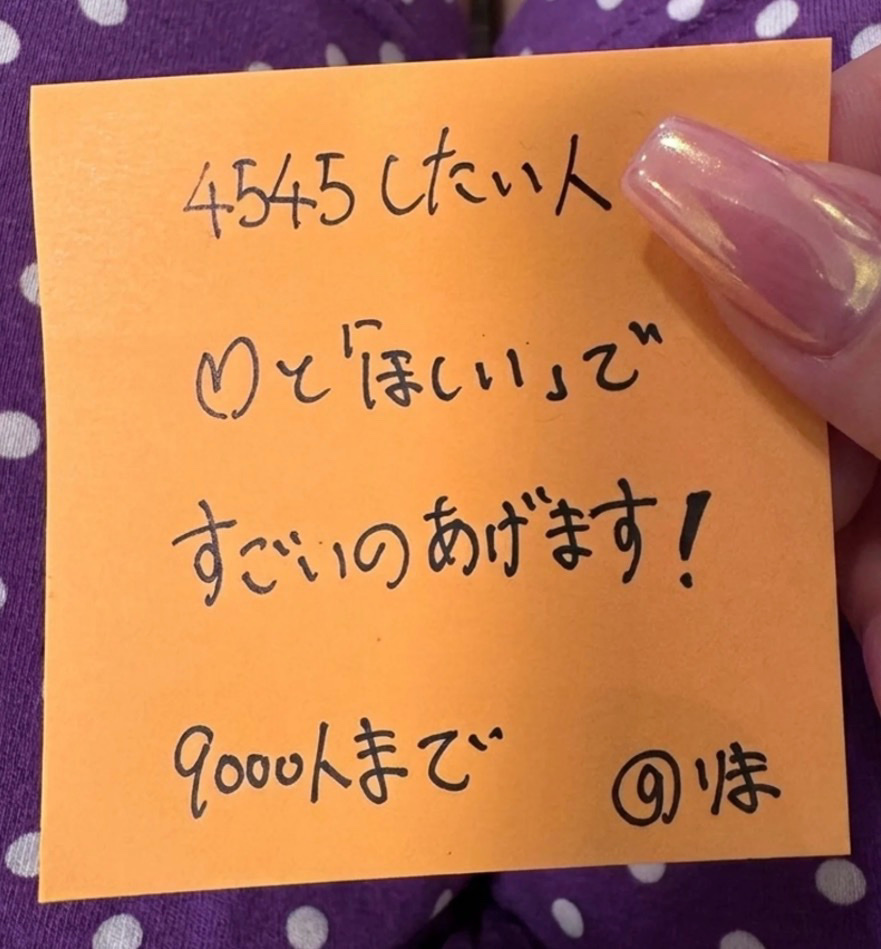 4545したい人
♡と「ほしい」で
すごいのあげます!
9000人まで
⑨りま